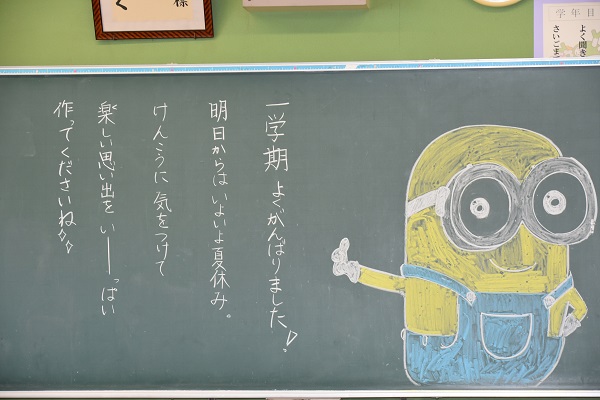 一学期 よくがんばりました!
明日からは いよいよ夏休み。
けんこうに 気をつけて
楽しい思い出を いーーっぱい
作ってくださいね
様
く
学年目
よく聞き
さいごま